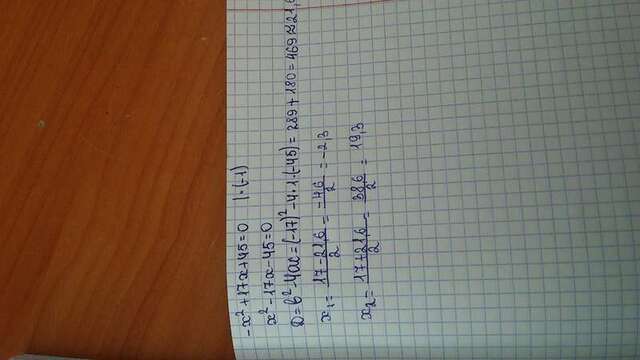 -x² + 17x + 45 = 0 | · (-1)
x² - 17x - 45 = 0
D = b² - 4ac = (-17)² - 4 · 1 · (-45) = 289 + 180 = 469 ≈ 21,6
x₁ = (17 - 21,6)/2 = -4,6/2 = -2,3
x₂ = (17 + 21,6)/2 = 38,6/2 = 19,3